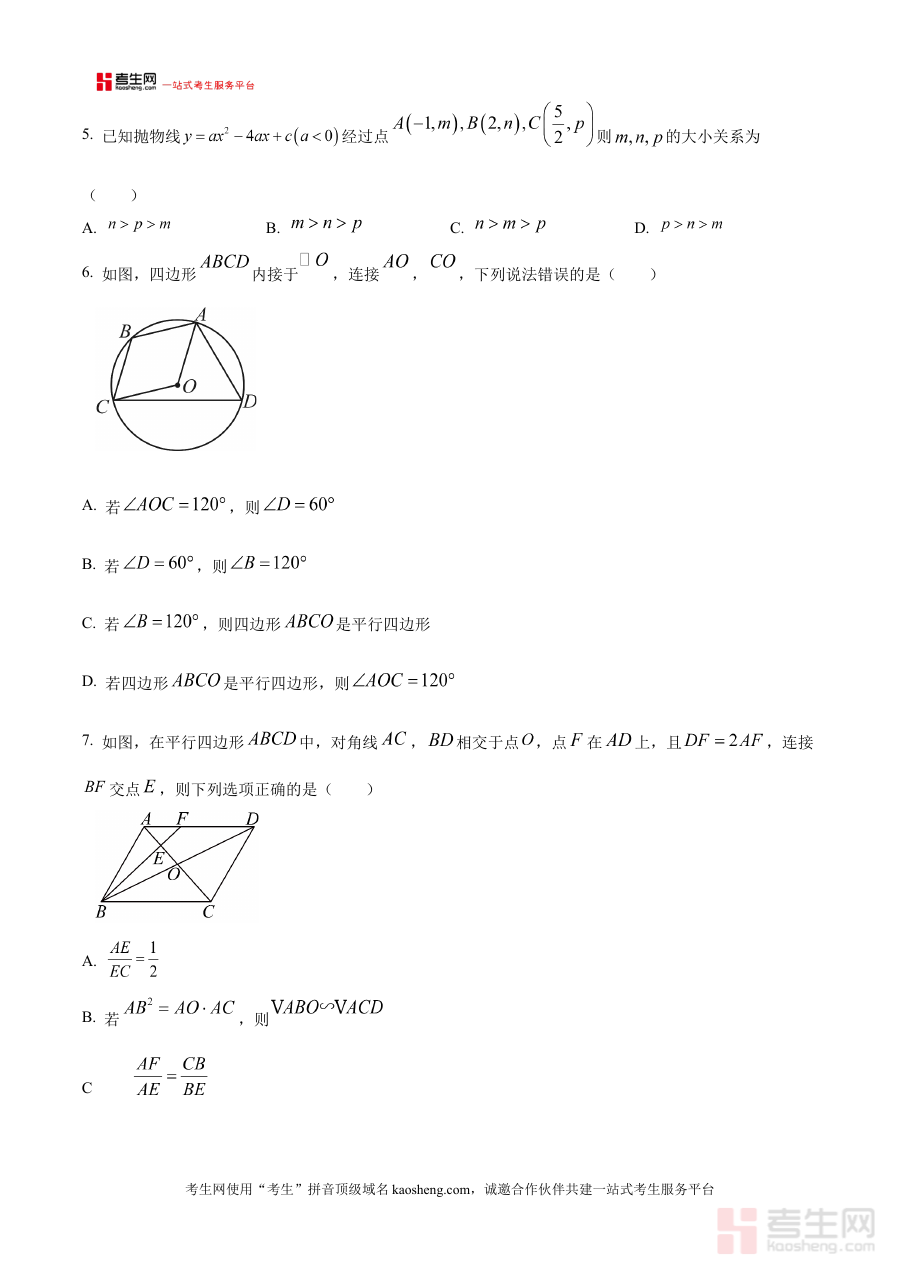 考生网 kaosheng.com 一站式考生服务平台
5. 已知抛物线 y = ax² − 4ax + c (a < 0) 经过点 A(−1, m), B(2, n), C(5/2, p) 则 m, n, p 的大小关系为
（　　）
A. n > p > m B. m > n > p C. n > m > p D. p > n > m
6. 如图，四边形 ABCD 内接于□ O，连接 AO，CO，下列说法错误的是（　　）
A
B
O
C
D
A. 若∠AOC = 120°，则∠D = 60°
B. 若∠D = 60°，则∠B = 120°
C. 若∠B = 120°，则四边形 ABCO 是平行四边形
D. 若四边形 ABCO 是平行四边形，则∠AOC = 120°
7. 如图，在平行四边形 ABCD 中，对角线 AC，BD 相交于点 O，点 F 在 AD 上，且 DF = 2AF，连接
BF 交点 E，则下列选项正确的是（　　）
A F D
E
O
B C
A. AE/EC = 1/2
B. 若 AB² = AO · AC，则 VABO∽VACD
C AF/AE = CB/BE
考生网使用“考生”拼音顶级域名 kaosheng.com，诚邀合作伙伴共建一站式考生服务平台
考生网
kaosheng.com